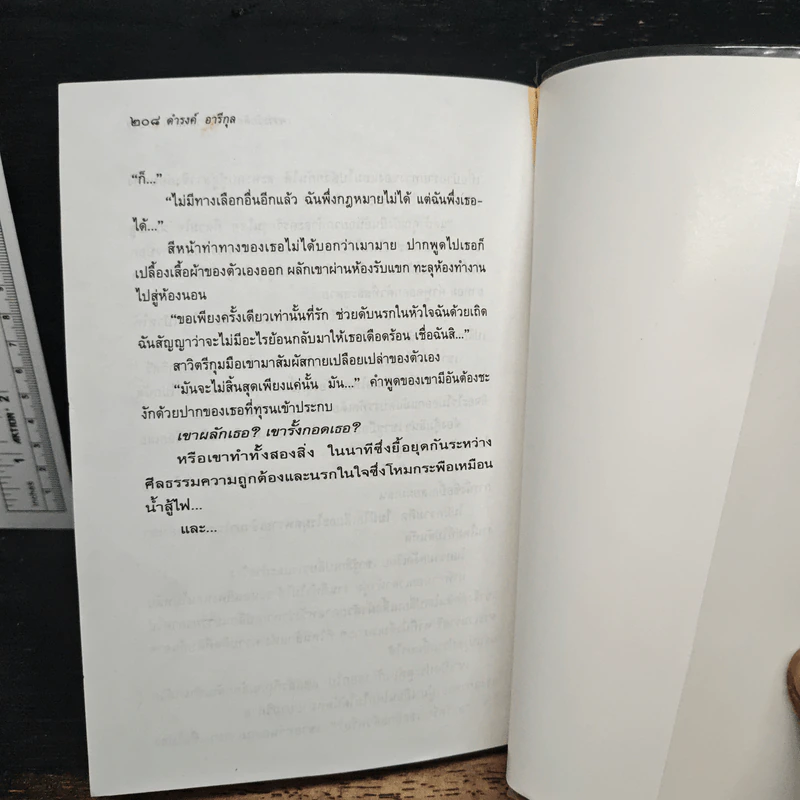 ๒๐๘ ดำรงค์ อารีกุล
“ก็...”
“ไม่มีทางเลือกอื่นอีกแล้ว ฉันพึ่งกฎหมายไม่ได้ แต่ฉันพึ่งเธอ-
ได้...”
สีหน้าท่าทางของเธอไม่ได้บอกว่าเมามาย ปากพูดไปเธอก็
เปลื้องเสื้อผ้าของตัวเองออก ผลักเขาผ่านห้องรับแขก ทะลุห้องทำงาน
ไปสู่ห้องนอน
“ขอเพียงครั้งเดียวเท่านั้นที่รัก ช่วยดับนรกในหัวใจฉันด้วยเถิด
ฉันสัญญาว่าจะไม่มีอะไรย้อนกลับมาให้เธอเดือดร้อน เชื่อฉันสิ...”
สาวิตรีกุมมือเขามาสัมผัสกายเปลือยเปล่าของตัวเอง
“มันจะไม่สิ้นสุดเพียงแค่นั้น มัน...” คำพูดของเขามีอันต้องชะ
งักด้วยปากของเธอที่ทุรนเข้าประกบ
เขาผลักเธอ? เขารั้งกอดเธอ?
หรือเขาทำทั้งสองสิ่ง ในนาทีซึ่งยื้อยุดกันระหว่าง
ศีลธรรมความถูกต้องและนรกในใจซึ่งโหมกระพือเหมือน
น้ำสู้ไฟ...
และ...